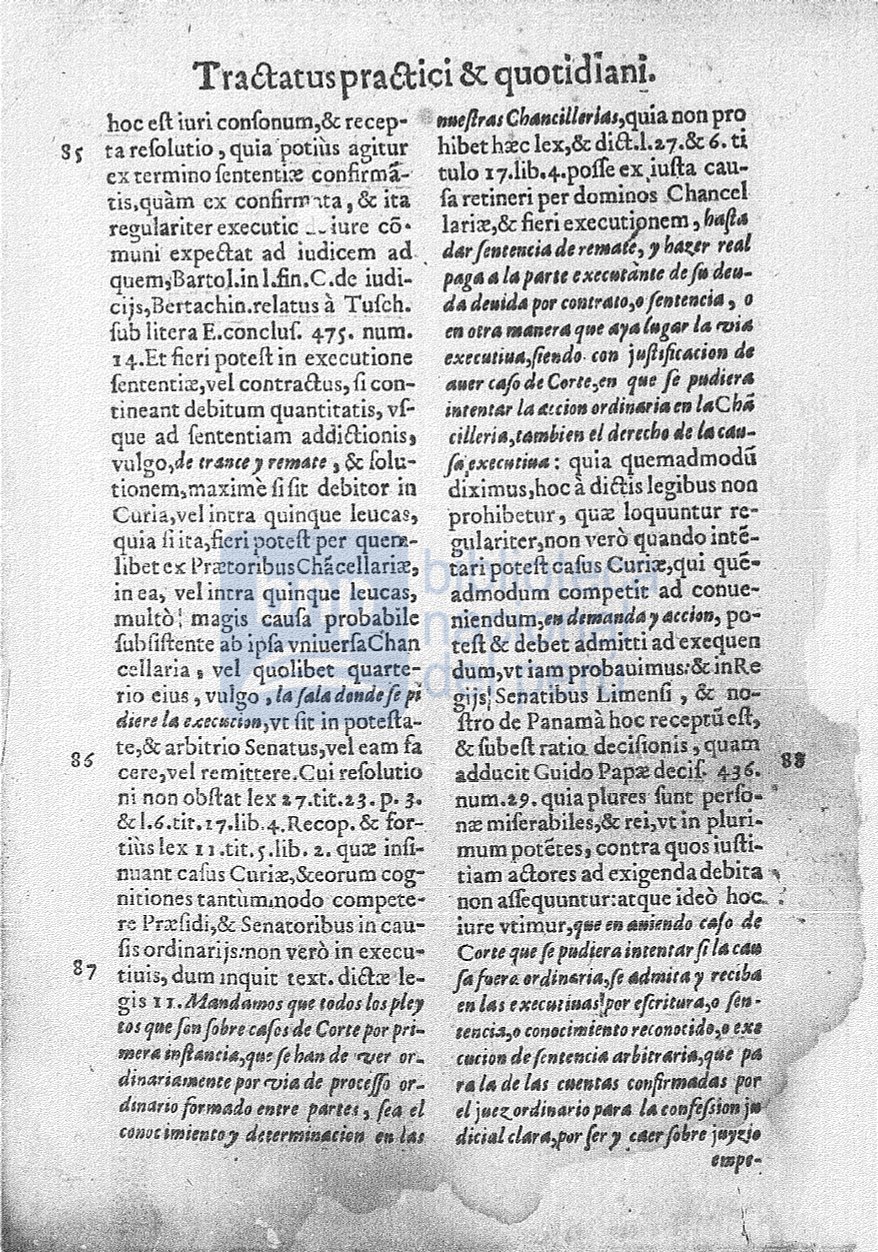 Tractatus practici & quotidiani.
hoc eſt iuri conſonum,& recep-
85 ta reſolutio, quia potiùs agitur
ex termino ſententiæ confirmã-
tis,quàm ex confirmata, & ita
regulariter executio iure cõ-
muni expectat ad iudicem ad
quem,Bartol.in l.fin.C.de iudi-
cijs,Bertachin.relatus à Tuſch.
ſub litera E.concluſ. 475. num.
14.Et fieri poteſt in executione
ſententiæ,vel contractus, ſi con-
tineant debitum quantitatis, vſ-
que ad ſententiam addictionis,
vulgo,de trance y remate, & ſolu-
tionem,maximè ſi ſit debitor in
Curia,vel intra quinque leucas,
quia ſi ita,fieri poteſt per quem-
libet ex Prætoribus Chãcellariæ,
in ea, vel intra quinque leucas,
multò magis cauſa probabile
ſubſiſtente ab ipſa vniuerſa Chan
cellaria, vel quolibet quarte-
rio eius, vulgo, la ſala donde ſe pi
diere la execucion,vt ſit in poteſta-
86 te,& arbitrio Senatus,vel eam fa
cere,vel remittere.Cui reſolutio
ni non obſtat lex 27.tit.23.p.3.
& l.6.tit.17.lib.4.Recop. & for-
tiùs lex 11.tit.5.lib. 2. quæ inſi-
nuant caſus Curiæ,& eorum cog-
nitiones tantùmmodo compete-
re Præſidi,& Senatoribus in cau-
ſis ordinarijs:non verò in execu-
87 tiuis, dum inquit text. dictæ le-
gis 11.Mandamos que todos los pley
tos que ſon ſobre caſos de Corte por pri-
mera inſtancia,que ſe han de ver or-
dinariamente por via de proceſſo or-
dinario formado entre partes, ſea el
conocimiento y determinacion en las
nueſtras Chancillerias,quia non pro
hibet hæc lex,& dict.l.27.& 6. ti
tulo 17.lib.4.poſſe ex iuſta cau-
ſa retineri per dominos Chancel
lariæ,& fieri executionem, haſta
dar ſentencia de remate, y hazer real
paga a la parte executante de ſu deu-
da deuida por contrato,o ſentencia, o
en otra manera que aya lugar la via
executiua,ſiendo con juſtificacion de
auer caſo de Corte,en que ſe pudiera
intentar la accion ordinaria en la Chã
cilleria,tambien el derecho de la cau-
ſa executiua: quia quemadmodũ
diximus,hoc à dictis legibus non
prohibetur, quæ loquuntur re-
gulariter,non verò quando intẽ-
tari poteſt caſus Curiæ,qui quẽ-
admodum competit ad conue-
niendum,en demanda y accion, po-
teſt & debet admitti ad exequen
dum,vt iam probauimus:& in Re
gijs Senatibus Limenſi, & no-
ſtro de Panamà hoc receptũ eſt,
& ſubeſt ratio deciſionis, quam
88 adducit Guido Papæ deciſ. 436.
num.29. quia plures ſunt perſo-
næ miſerabiles,& rei,vt in pluri-
mum potẽtes, contra quos iuſti-
tiam actores ad exigenda debita
non aſſequuntur:atque ideò hoc
iure vtimur,que en auiendo caſo de
Corte que ſe pudiera intentar ſi la cau
ſa fuera ordinaria,ſe admita y reciba
en las executiuas por eſcritura,o ſen-
tencia,o conocimiento reconocido,o exe
cucion de ſentencia arbitraria,que pa
ra la de las cuentas confirmadas por
el juez ordinario para la confeſſion ju
dicial clara,por ſer y caer ſobre juyzio
empe-
biblioteca
nacional
del perú